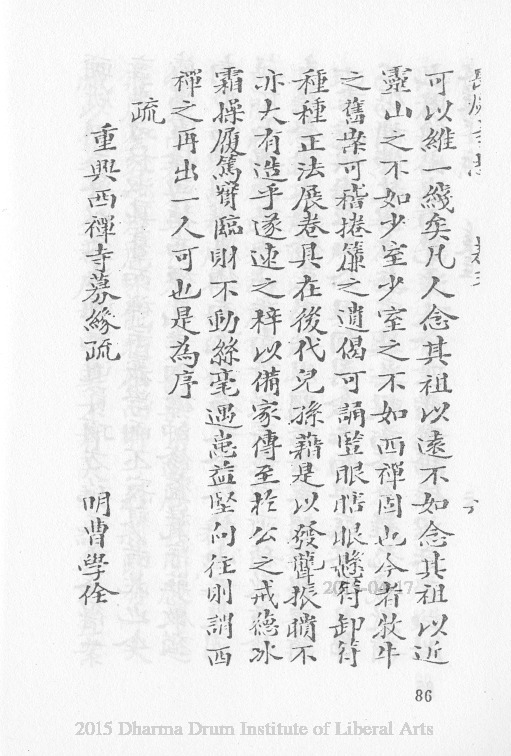 長慶寺志 卷三 六
可以維一綫矣凡人念其祖以遠不如念其祖以近
靈山之不如少室少室之不如西禪固也今者牧牛
之舊桊可稽捲簾之遺偈可誦豎眼瞎眼懸符卸符
種種正法展卷具在後代兒孫藉是以發聾振聵不
亦大有造乎遂速之梓以備家傳至於公之戒德冰
霜操履篤實臨財不動絲毫遇患益堅向往則謂西
禪之再出一人可也是為序
疏
重興西禪寺募緣疏 明曹學佺
86
2015 Dharma Drum Institute of Liberal Arts